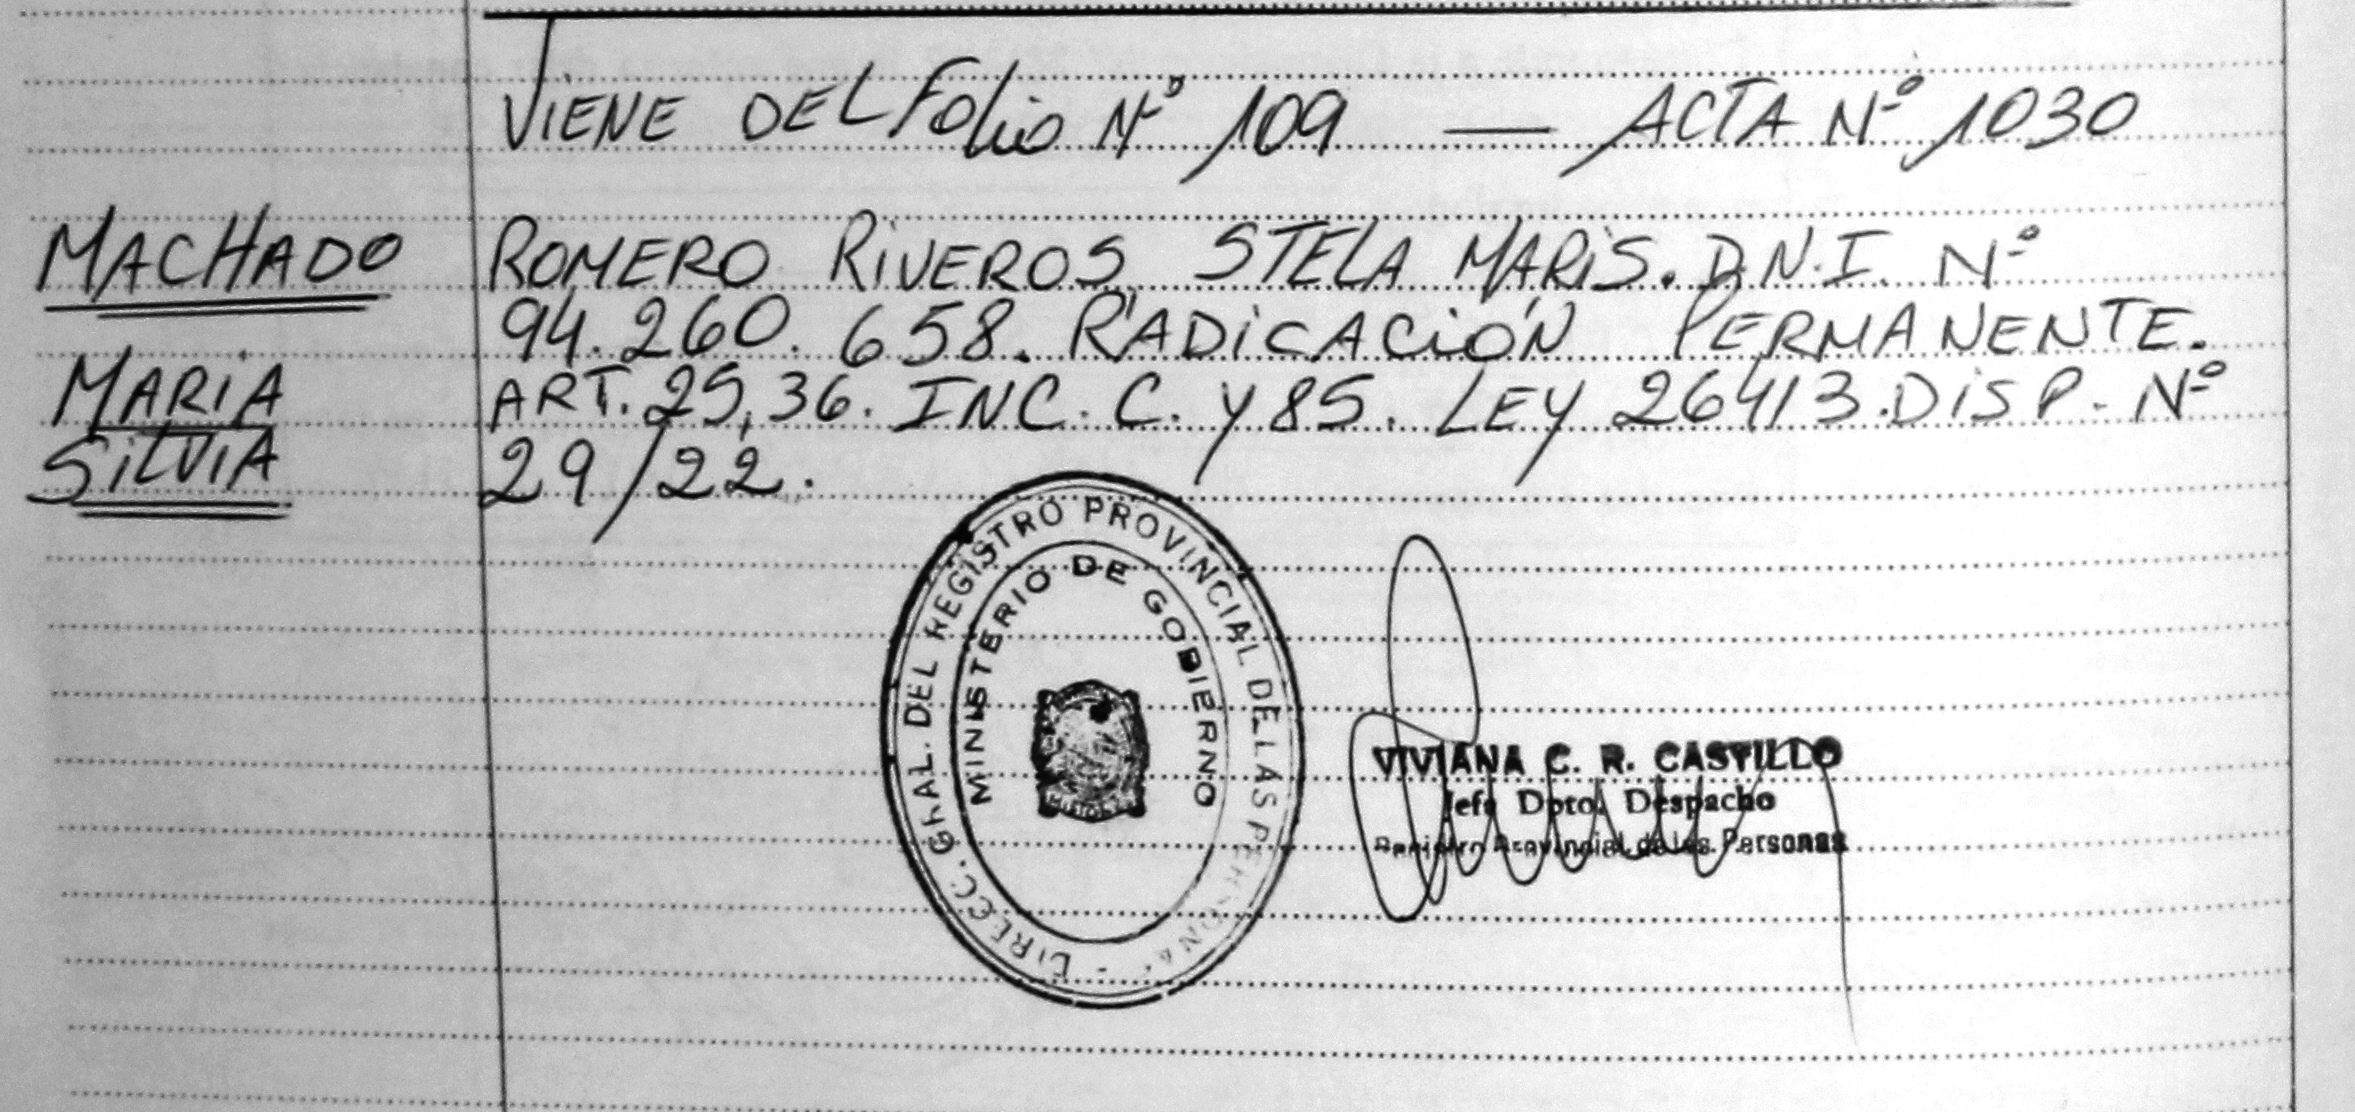 VIENE DEL Folio Nº 109 — ACTA Nº 1030
MACHADO
MARIA
SILVIA
ROMERO RIVEROS, STELA MARIS. D.N.I. Nº
94.260.658. RADICACIÓN PERMANENTE.
ART. 25, 36. INC. C. Y 85. LEY 26413. DISP. Nº
29/22.
DIRECC. GRAL. DEL REGISTRO PROVINCIAL DE LAS PERSONAS
MINISTERIO DE GOBIERNO
VIVIANA C. R. CASTILLO
Jefe Dpto. Despacho
Registro Provincial de las Personas